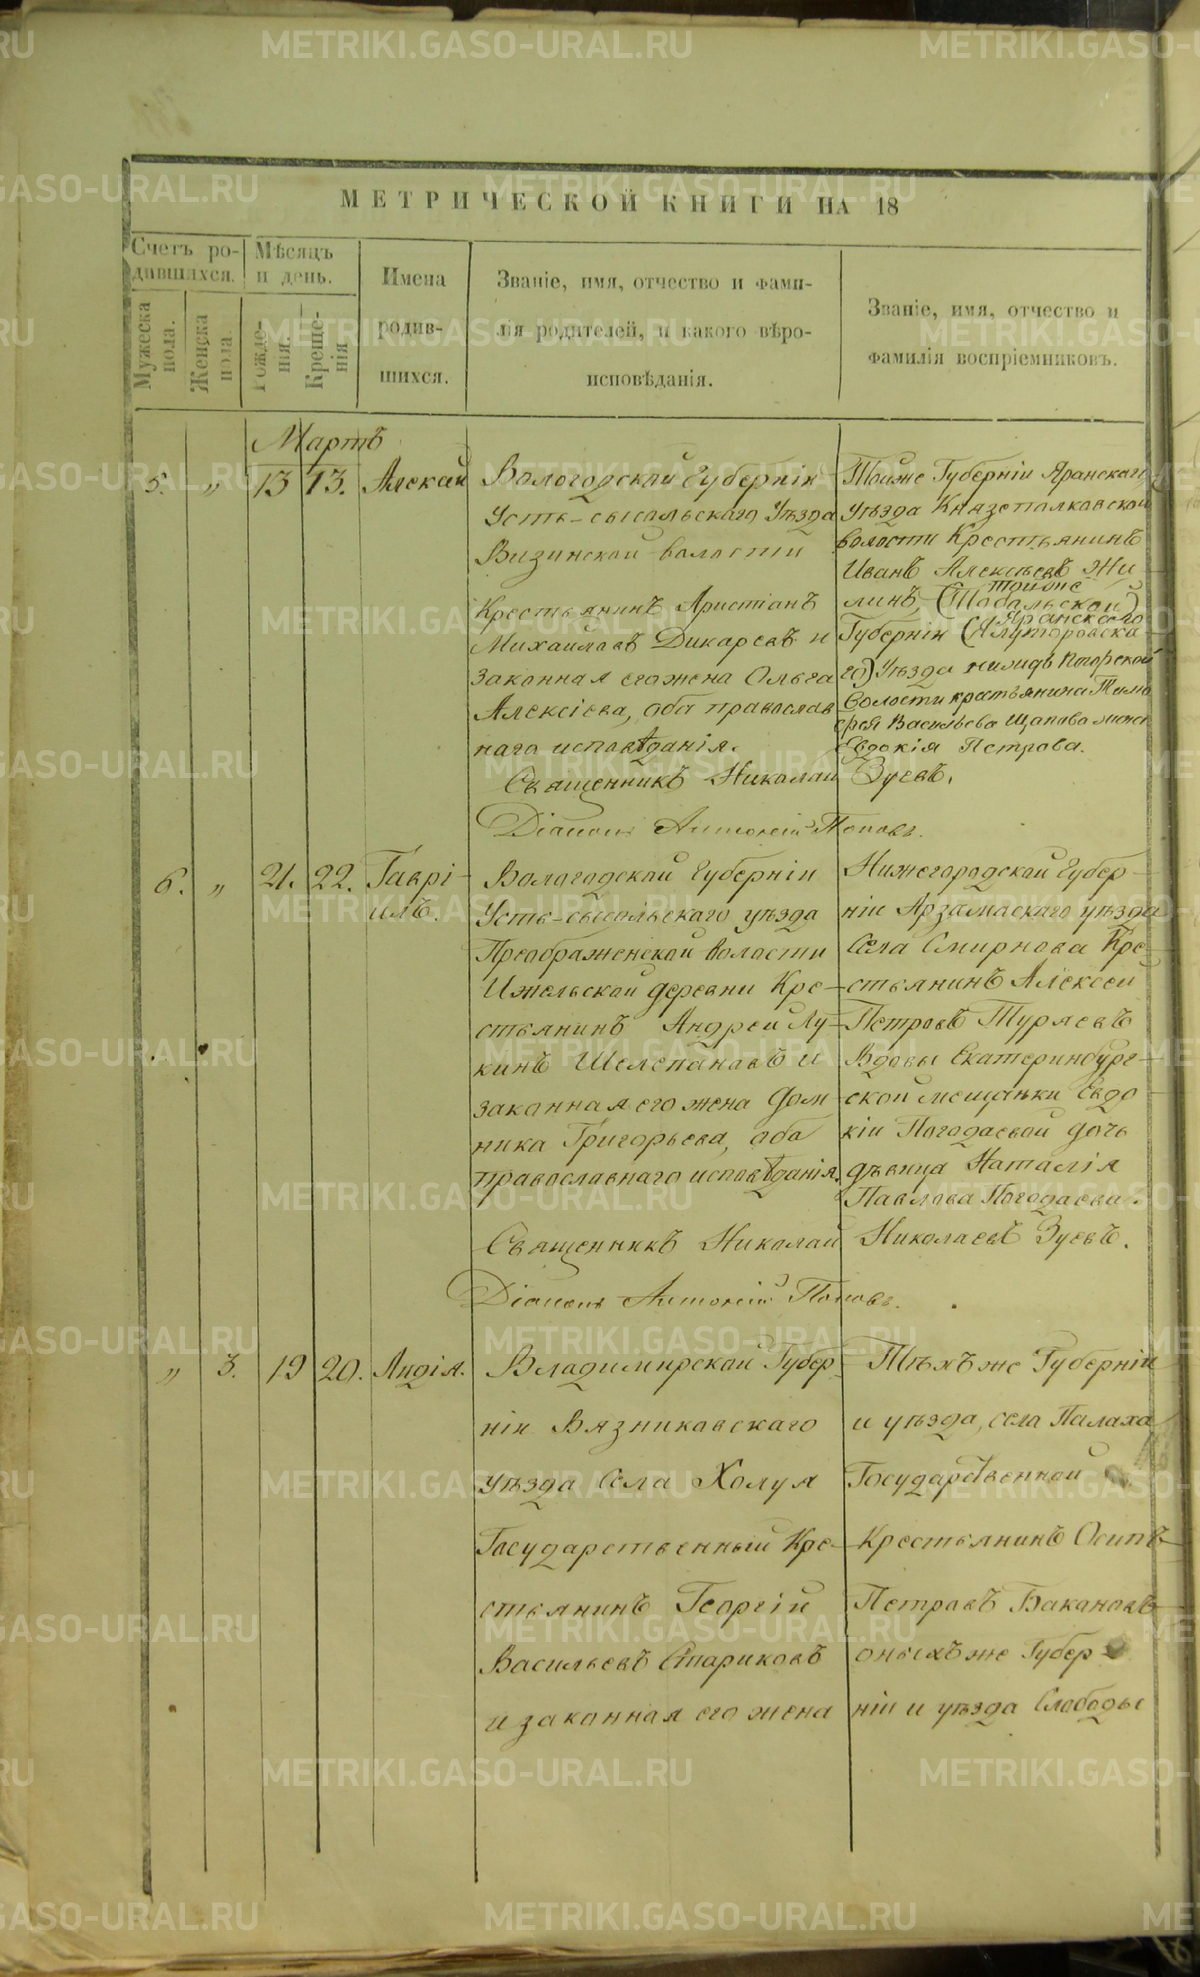 МЕТРИЧЕСКОЙ КНИГИ НА 18
Счетъ ро-
дившихся.
Мѣсяцъ
и день.
Мужеска
пола.
Женска
пола.
Рожде-
нія.
Креще-
нія
Имена
родив-
шихся.
Званіе, имя, отчество и фами-
лія родителей, и какого вѣро-
исповѣданія.
Званіе, имя, отчество и
фамилія воспріемниковъ.
Мартъ
5. „ 13 13.
Вологодской Губерніи
Усть-сысольскаго Уѣзда
Визинской волости
Крестьянинъ Аристіанъ
Михайловъ Дикаревъ и
законная его жена Ольга
Алексіева, оба православ
наго исповѣданія.
Тойже Губерніи Яранскаго
уѣзда Князеполкавской
волости Крестьянинъ
Иванъ Алексѣевъ Жи-
линъ, (Тобальской) тойже
Губерніи (Ялуторовска- Яранскаго
го) Уѣзда
волости крестьянина Тимо
фея Васильева Щапова жена
Евдокія Петрова.
Священникъ Николай Зуевъ.
Діаконъ Антоній Поповъ.
6. „ 21. 22. Гаврі-
илъ.
Вологодской Губерніи
Усть-сысольскаго уѣзда
Преображенской волости
Ижельской деревни Кре-
стьянинъ Андрей Лу-
кинъ Шелепановъ и
законная его жена Дом-
ника Григорьева, оба
православнаго исповѣданія.
Нижегородской Губер-
ніи Арзамаскаго уѣзда
Села Смирнова Кре-
стьянинъ Алексей
Петровъ Туряевъ
Вдовы Екатеринбург-
ской мещанки Евдо
кіи Погодаевой дочь
дѣвица Наталія
Павлова Погодаева.
Священникъ Николай Николаевъ Зуевъ.
Діаконъ Антоній Поповъ.
„ 3. 19 20. Лидія.
Владимирской Губер-
ніи Вязниковскаго
уѣзда Села Холуя
Государственный Кре-
стьянинъ Георгій
Васильевъ Стариковъ
и законная его жена
Тѣхъ же Губерніи
и уѣзда, села Палаха
Государственной
Крестьянинъ Осипъ
Петровъ Бакановъ
оныхъ же Губер-
ніи и уѣзда Слободы
METRIKI.GASO-URAL.RU